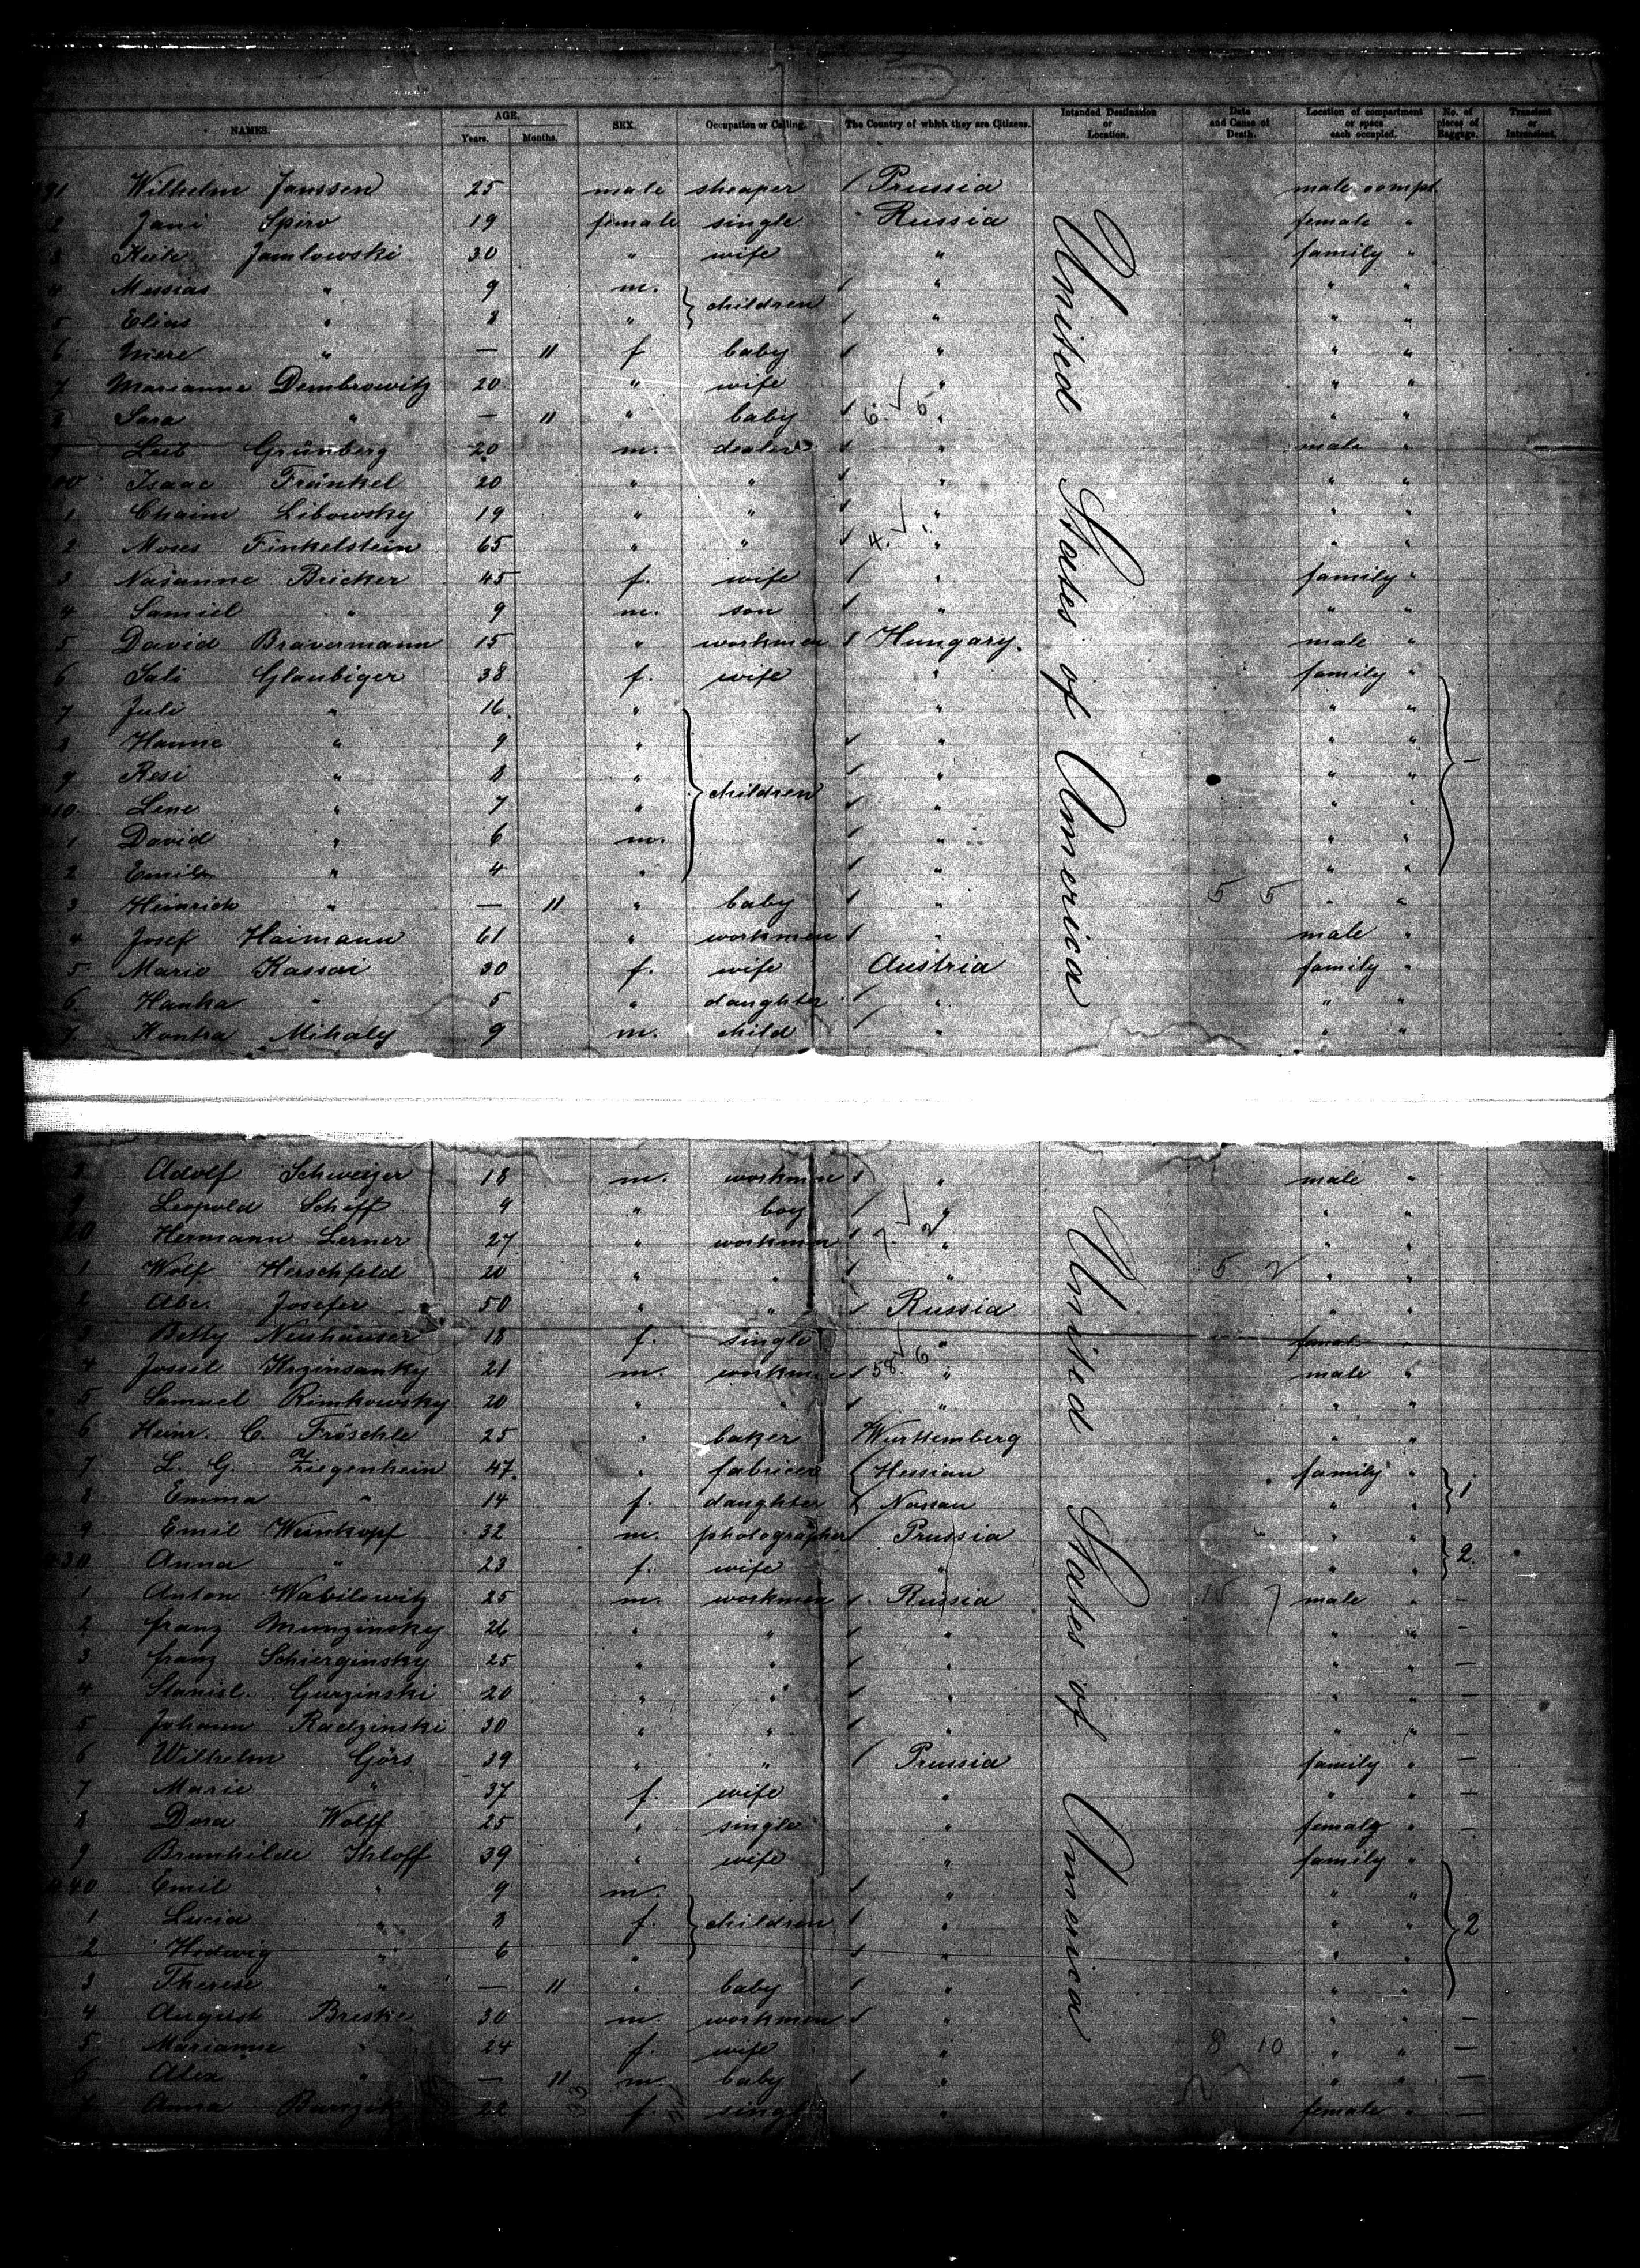 NAMES. AGE. Years. Months. SEX. Occupation or Calling. The Country of which they are Citizens. Intended Destination or Location. Date and Cause of Death. Location of compartment or space each occupied. No. of pieces of Baggage. Transient or Intransient.
91 Wilhelm Janssen 25 male sheaper / Prussia male compt
2 Jani Spiro 19 female single Russia female "
3 Keile Jamlowski 30 " wife " family "
4 Messias " 9 m. children / " " "
5 Elias " 8 " / " " "
6 Mere " — 11 f baby / " " "
7 Marianne Dembrowitz 20 " wife " " "
8 Sara " — 11 " baby / " " "
9 Leib Grünberg 20 m. dealer / " male "
Isaac Fränkel 20 " " / " " "
1 Chaim Libowsky 19 " " / " " "
2 Moses Finkelstein 65 " " / " " "
3 Nasanne Bricker 45 f. wife / " family "
4 Samiel " 9 m. son / " " "
5 David Bravermann 15 " workmen / Hungary. male "
6 Sali Glaubiger 38 f. wife " family "
7 Juli " 16 " " " "
8 Hanne " 9 " / " " "
9 Resi " 8 " children / " " " 1
10 Lene " 7 " / " " "
1 David " 6 m. / " " "
2 Emil " 4 " / " " "
3 Heinrich " — 11 " baby / " 5 5 " "
4 Josef Haimann 61 " workmen / " male "
5 Marie Kassai 30 f. wife Austria family "
6. Hanka " 5 " daughter / " " "
7. Kontra Mihaly 9 m. child / " " "
United States of America
8 Adolf Schweizer 18 m. workmen / " male "
9 Leopold Schiff 9 " boy / " " "
20 Hermann Lerner 27 " workmen / " " "
1 Wolf Herschfeld 20 " " / " 5 2 " "
2 Abe. Josefer 50 " " / Russia " "
3 Betty Neuhäuser 18 f. single " female "
4 Jossel Krzinsanky 21 m. workmen / 58. 6 " male "
5 Samuel Rimkowsky 20 " " / " " "
6 Heinr. C. Fröschle 25 " baker / Wurttemberg " "
7 L. G. Ziegenhein 47. " fabricer Hessian family "
8 Emma " 14 f. daughter Nassau " " 1
9 Emil Weinkopf 32 m. photographer / Prussia " "
30 Anna " 23 f. wife " " " 2.
1 Anton Wabilowitz 25 m. workmen / Russia 15 7 male " —
2 franz Munzinsky 26 " " / " " " —
3 franz Schierginsky 25 " " / " " " —
4 Stanisl. Gurzinski 20 " " / " " " —
5 Johann Radzinski 30 " " / " " " —
6 Wilhelm Görs 39 " " / Prussia family " —
7 Marie " 37 f. wife " " " —
8 Dora Wolff 25 " single " female " —
9 Brunhilde Ihloff 39 " wife " family "
40 Emil " 9 m. / " " "
1 Lucia " 8 f. children / " " " 2
2 Hedwig " 6 " / " " "
3 Therese " — 11 " baby / " " "
4 August Breske 30 m. workmen / " " " —
5 Marianne " 24 f. wife " 8 10 " " —
6 Alex " — 11 m. baby / " " " —
7 Anna 22 f single " female " —
United States of America